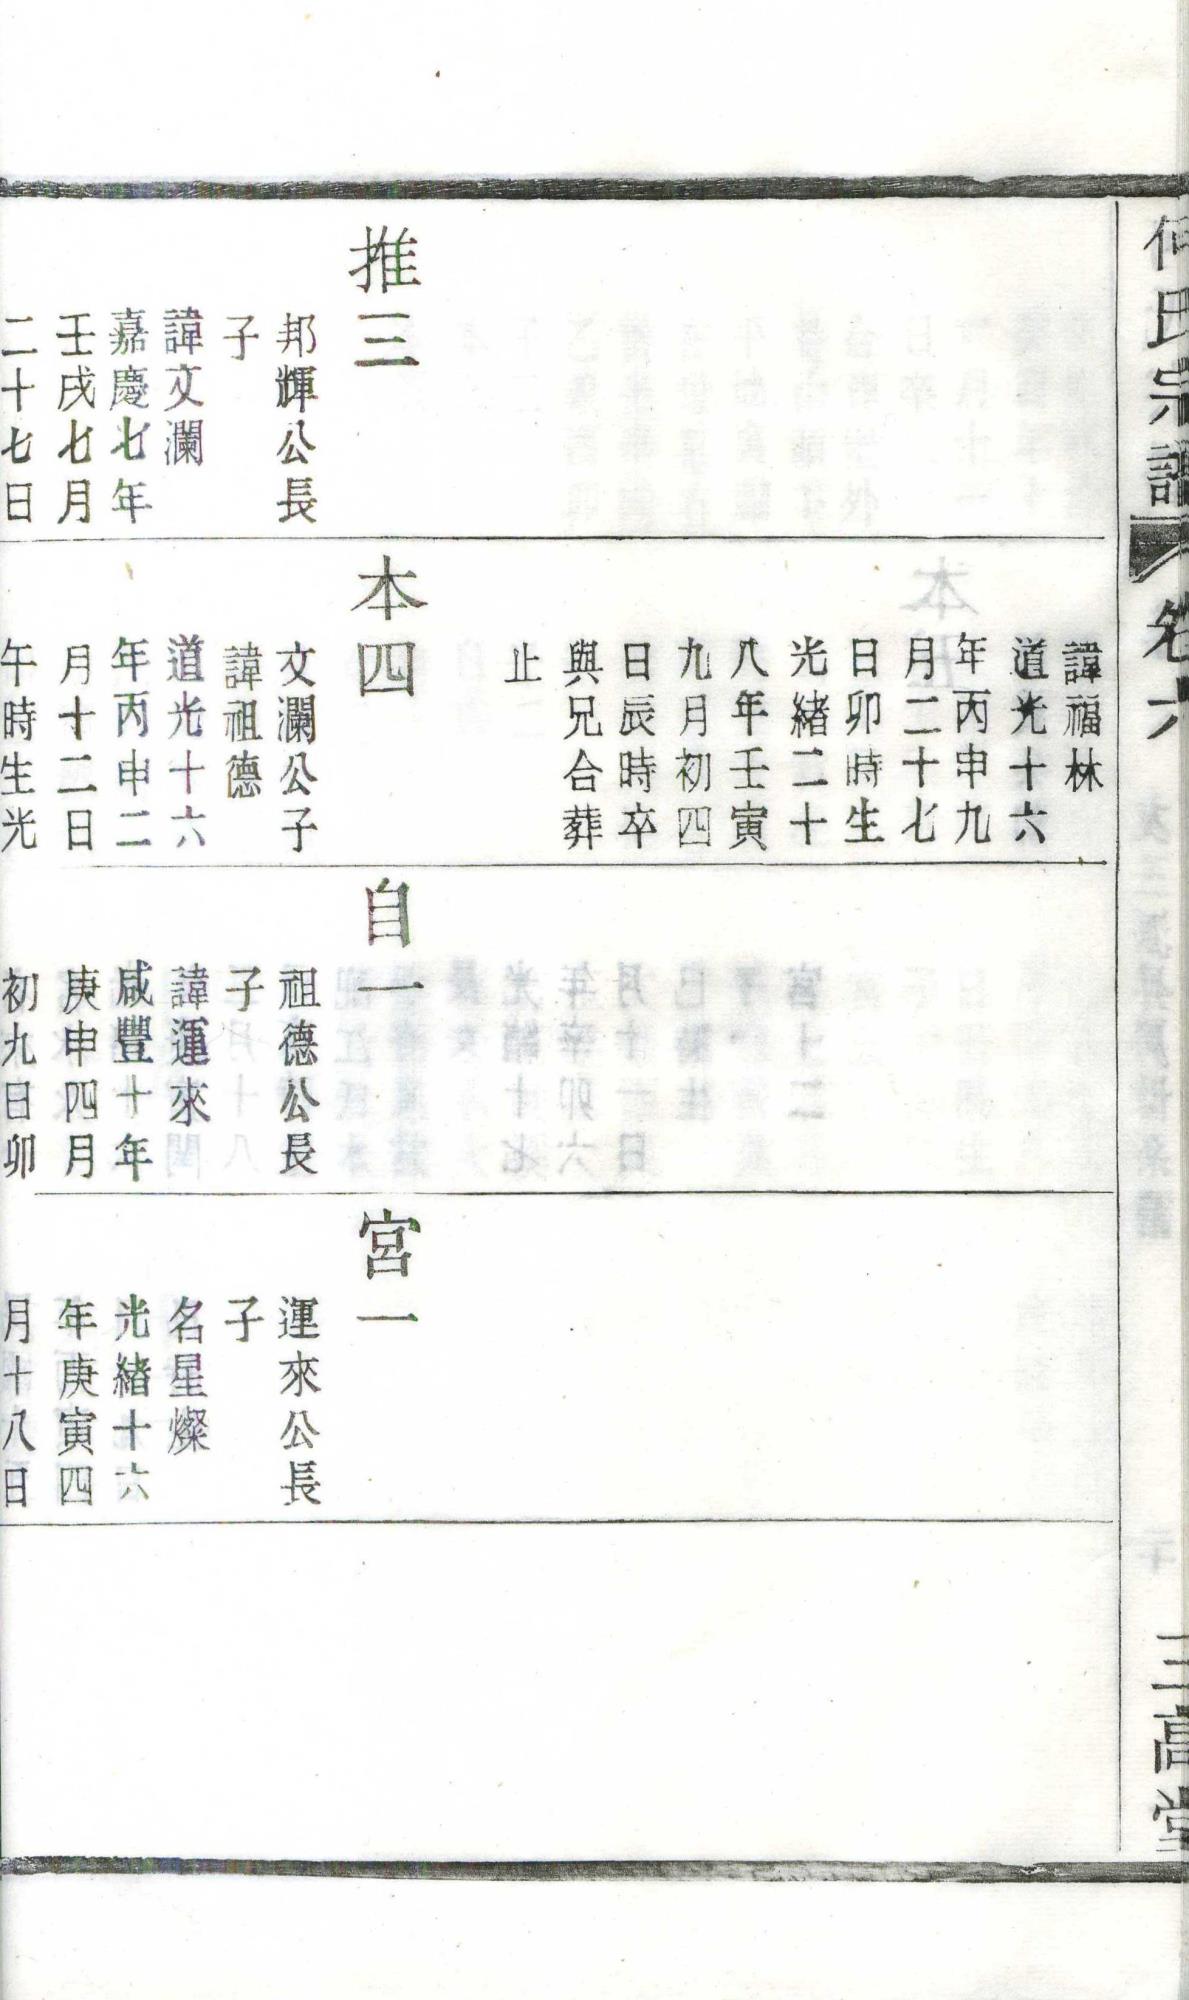 何氏宗譜
卷六
三高堂
推三
邦輝公長
子
諱文瀾
嘉慶七年
壬戌七月
二十七日
諱福林
道光十六
年丙申九
月二十七
日卯時生
光緒二十
八年壬寅
九月初四
日辰時卒
與兄合葬
止
本四
文瀾公子
諱祖德
道光十六
年丙申二
月十二日
午時生光
自一
祖德公長
子
諱運來
咸豐十年
庚申四月
初九日卯
宮一
運來公長
子
名星燦
光緒十六
年庚寅四
月十八日